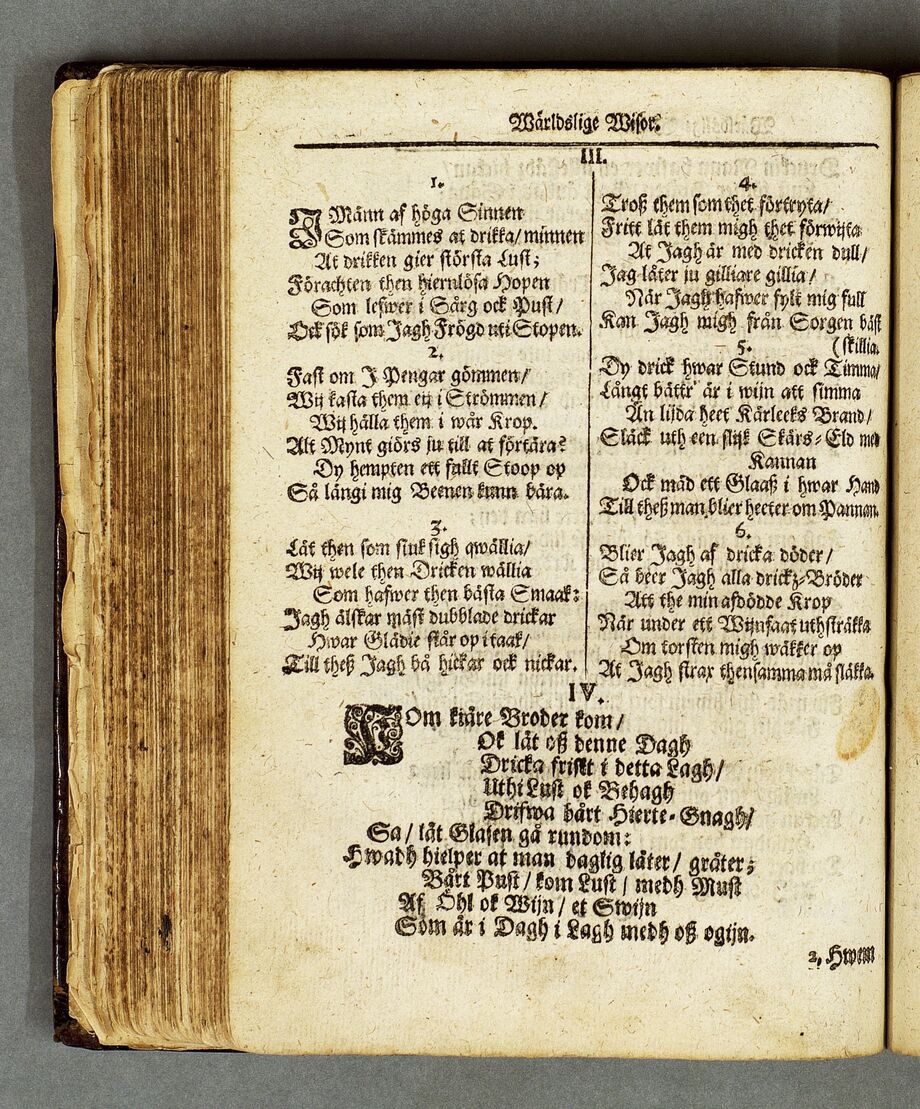 Wärldslige Wisor.
III.
1.
I Männ af höga Sinnen
Som skämmes at drikka/ minnen
At drikken gier största Lust;
Förachten then hiernlösa Hopen
Som lefwer i Sårg ock Pust/
Ock sök som Jagh Frögd uti Stopen.
2.
Fast om J Pengar gömmen/
Wij kasta them eij i Strömmen/
Wij hälla them i wår Krop.
Alt Mynt giörs ju till at förtära?
Dy hempten ett fullt Stoop op
Så längi mig Beenen kunn bära.
3.
Låt then som siuk sigh qwällia/
Wij wele then Dricken wällia
Som hafwer then bästa Smaak:
Jagh älskar mäst dubblade drickar
Hwar Glädie står op i taak/
Till theß Jagh bå hickar ock nickar.
4.
Troß them som thet förtryta/
Fritt låt them migh thet förwijta
At Jagh är med dricken dull/
Jag låter ju gilliare gillia/
När Jagh hafwer fylt mig full
Kan Jagh migh från Sorgen bäst
(skillia.
5.
Dy drick hwar Stund ock Timma/
Långt bättr' är i wijn att simma
Än lilda heet Kärleeks Brand/
Släck uth een slijk Skärs-Eld med
Kannan
Ock mäd ett Glaaß i hwar Hand
Till theß man blier heeter om Pannan.
6.
Blier Jagh af dricka döder/
Så beer Jagh alla drickz-Bröder
Att the min afdödde Krop
När under ett Wijnfaat uthsträkka
Om torsten migh wäkker op
At Jagh strax thensamma må släkka.
IV.
Kom kiäre Broder kom/
Ok låt oß denne Dagh
Dricka friskt i detta Lagh/
Uthi Lust ok Behagh
Drifwa bårt Hierte-Gnagh/
Sa/ låt Glasen gå rundom:
Hwadh hielper at man daglig låter/ gråter;
Bårt Pust/ kom Lust/ medh Must
Af Öhl ok Wijn/ et Swijn
Som är i Dagh i Lagh medh oß ogijn.
2, Hwem